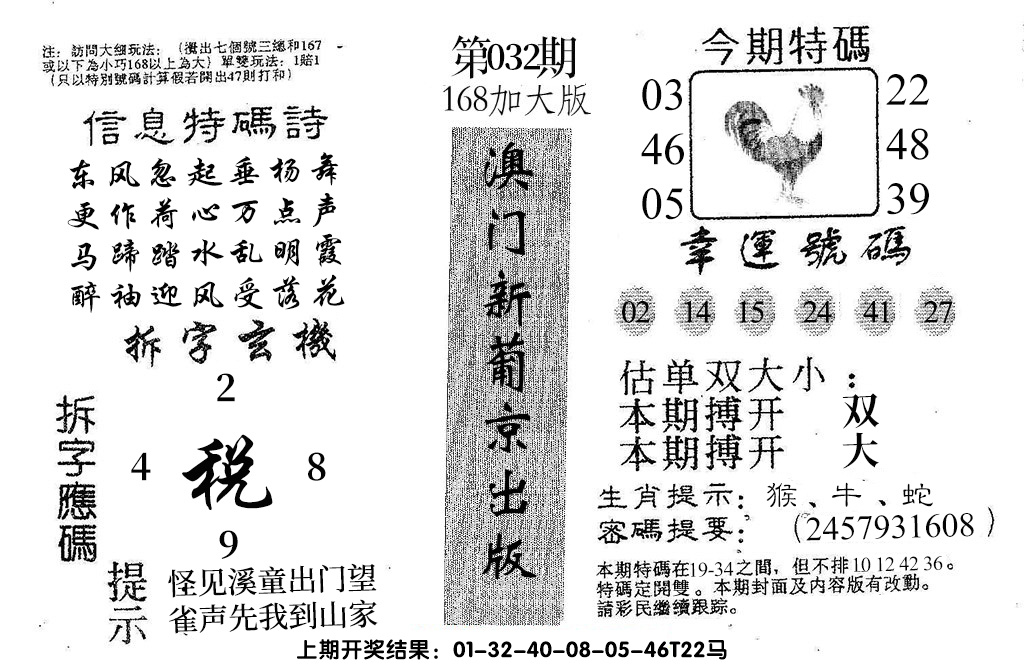 注：訪問大细玩法：（攪出七個號三總和167
或以下為小巧168以上為大）單雙玩法：1賠1
（只以特別號碼計算假若開出47則打和）
信息特碼詩
东风忽起垂杨舞
更作荷心万点声
马蹄踏水乱明霞
醉袖迎风受落花
拆字玄機
2
4 税 8
9
拆字應碼
提示
怪见溪童出门望
雀声先我到山家
第032期
168加大版
澳门新葡京出版
今期特碼
03 22
46 48
05 39
幸運號碼
02 14 15 24 41 27
估单双大小：
本期搏开 双
本期搏开 大
生肖提示：猴、牛、蛇
密碼提要：（2457931608）
本期特碼在19-34之間，但不排10 12 42 36。
特碼定開雙。本期封面及内容版有改動。
請彩民繼續跟踪。
上期开奖结果：01-32-40-08-05-46T22马